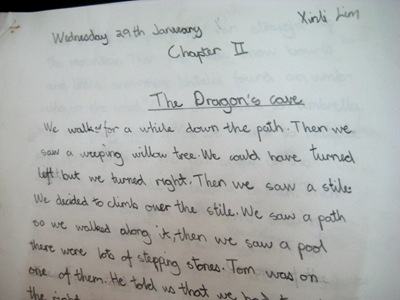 Wednesday 29th January
Xinli Lim
Chapter II
The Dragon's cave
We walk for a while down the path. Then we
saw a weeping willow tree. We could have turned
left but we turned right. Then we saw a stile.
We decided to climb over the stile. We saw a path
so we walked along it, then we saw a pool
there were lots of stepping stones. Tom was on
one of them. He told us that we had
the right